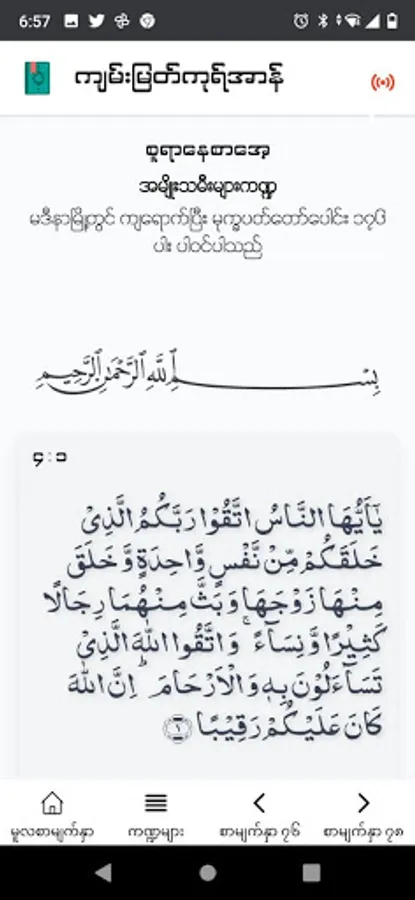 6:57
ကျမ်းမြတ်ကုရ်အာန်
စူရာနေစာအေ့
အမျိုးသမီးများကဏ္ဍ
မဒီနာမြို့တွင် ကျရောက်ပြီး မုက္ခပတ်တော်ပေါင်း ၁၇၆
ပါး ပါဝင်ပါသည်
بِسْمِ اللَّهِ الرَّحْمَٰنِ الرَّحِيمِ
၄:၁
يٰٓاَيُّهَا النَّاسُ اتَّقُوْا رَبَّكُمُ الَّذِىْ
خَلَقَكُمْ مِّنْ نَّفْسٍ وَّاحِدَةٍ وَّخَلَقَ
مِنْهَا زَوْجَهَا وَبَثَّ مِنْهُمَا رِجَالًا
كَثِيْرًا وَّنِسَآءً ۚ وَاتَّقُوا اللّٰهَ الَّذِىْ
تَسَآءَلُوْنَ بِهٖ وَالْاَرْحَامَ ؕ اِنَّ اللّٰهَ
كَانَ عَلَيْكُمْ رَقِيْبًا ۝١
မူလစာမျက်နှာ ကဏ္ဍများ စာမျက်နှာ ၇၆ စာမျက်နှာ ၇၈